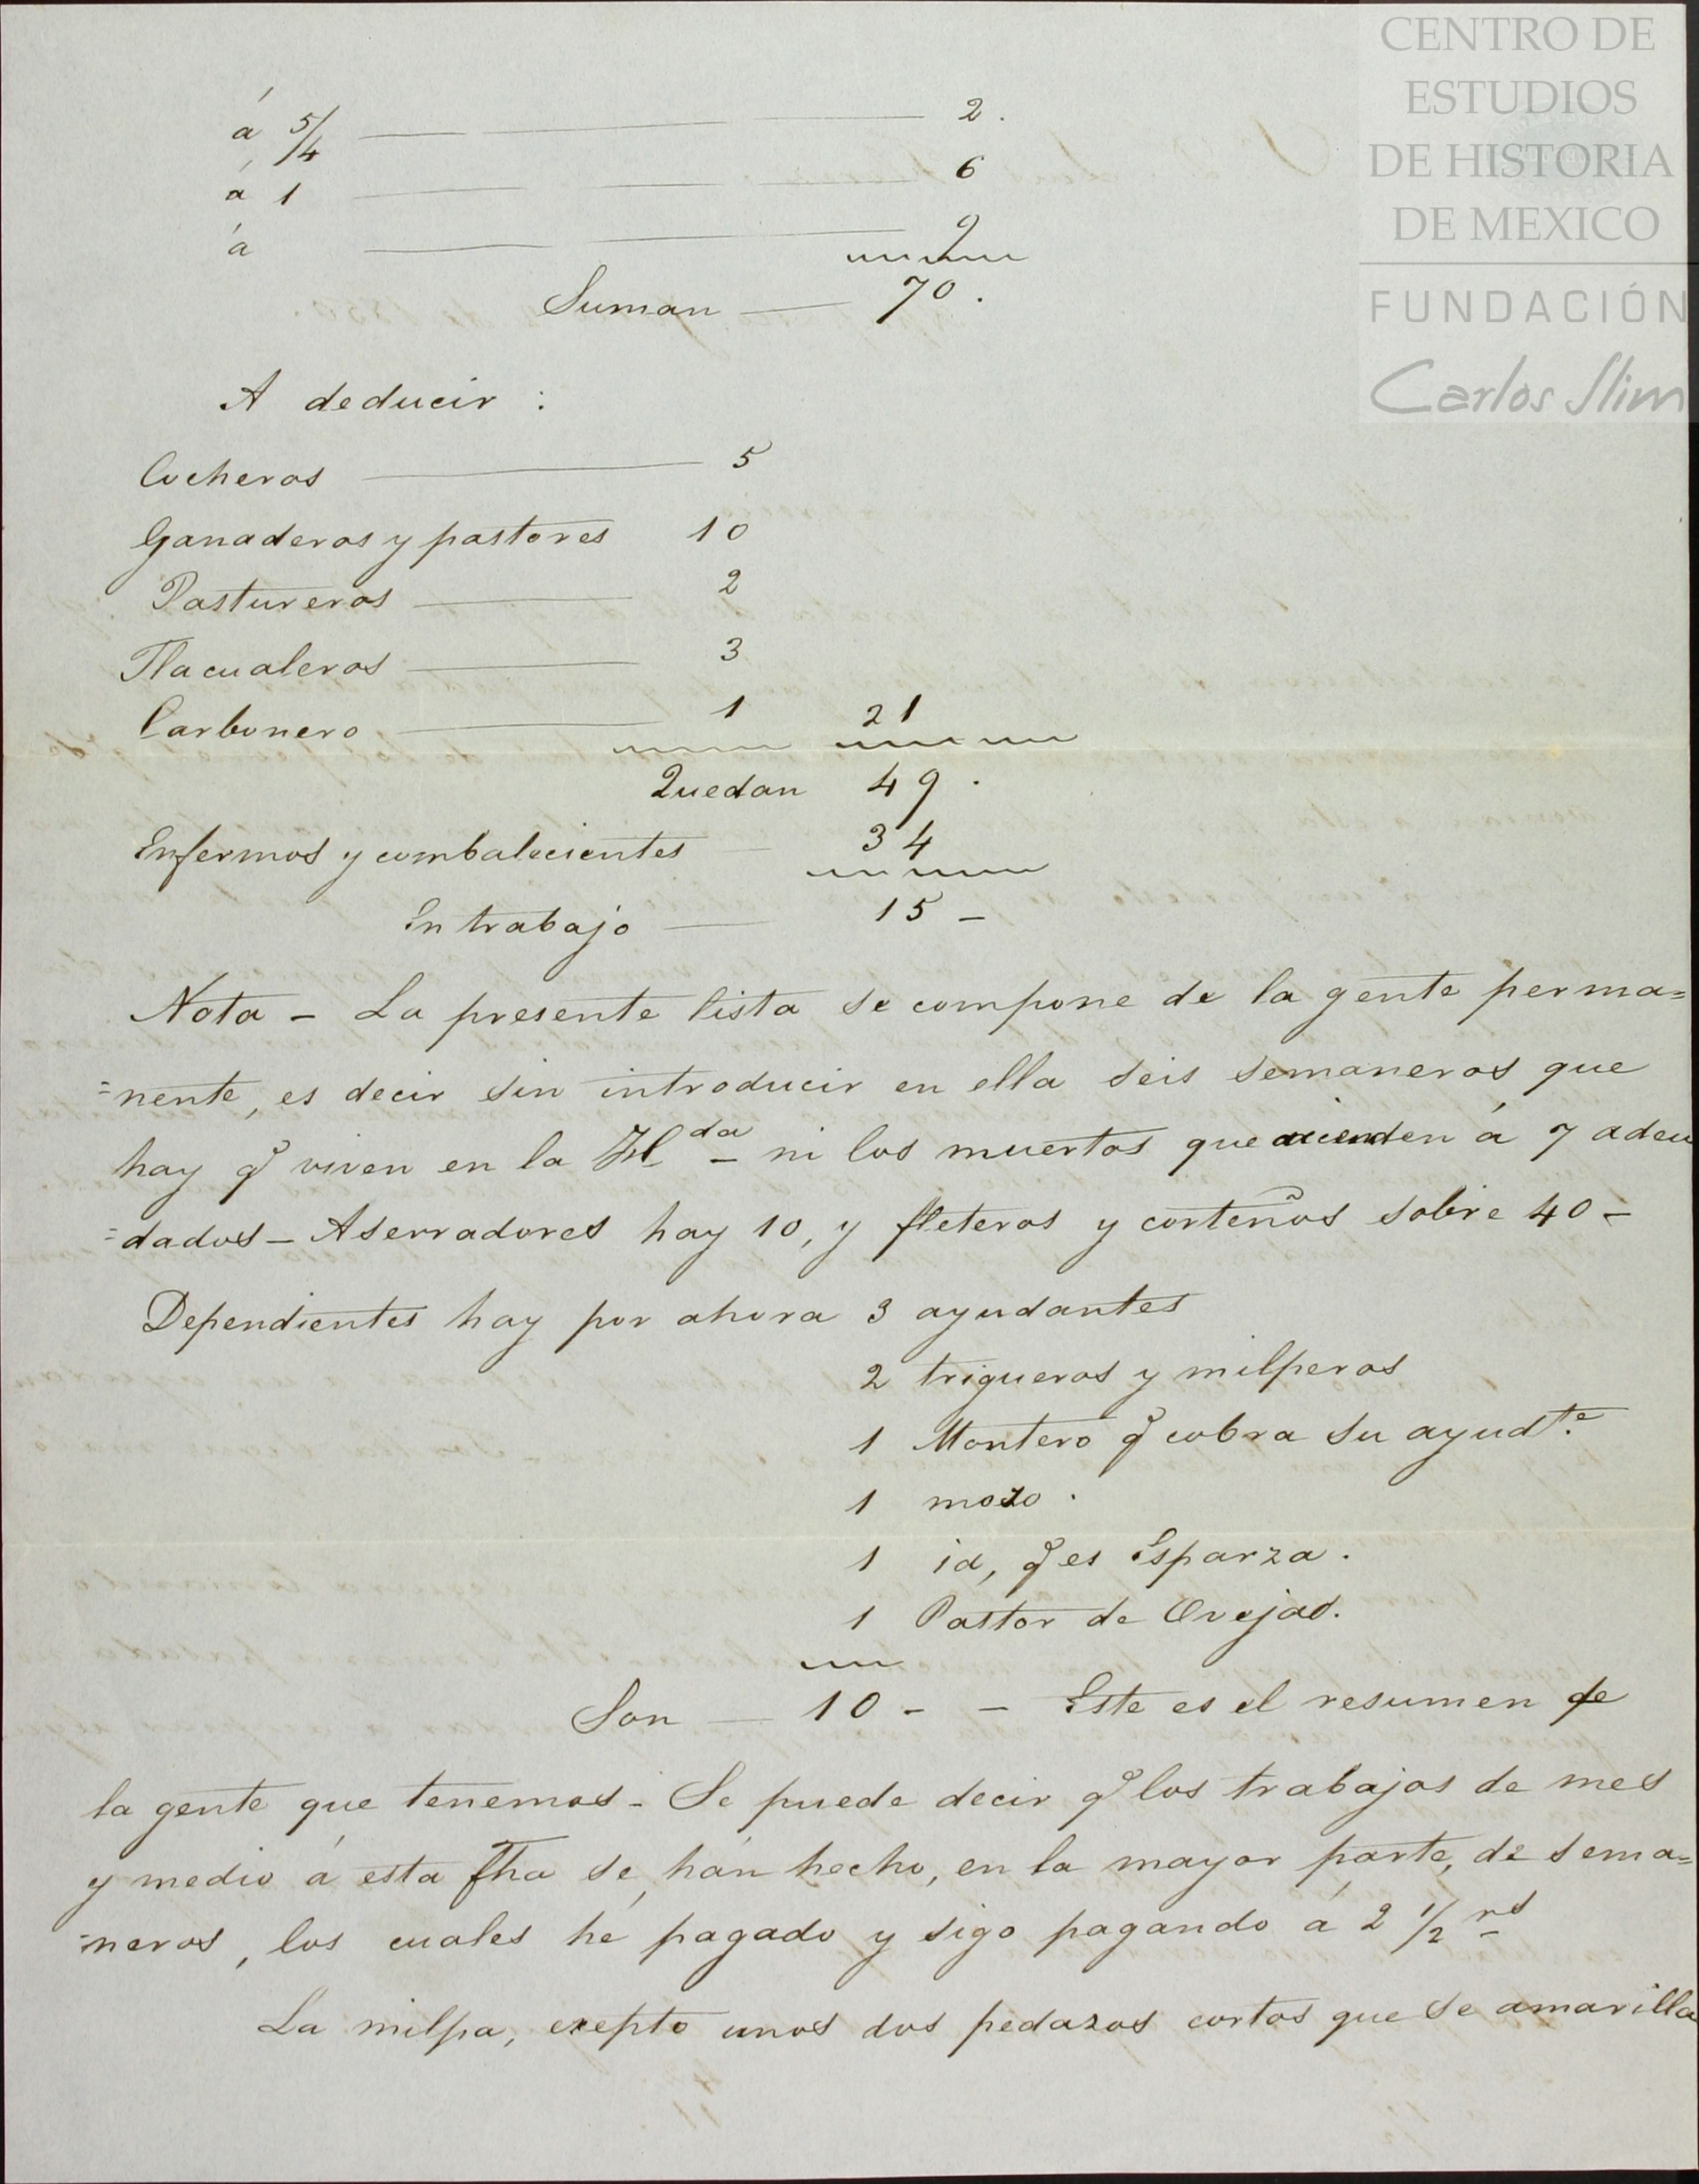 CENTRO DE
ESTUDIOS
DE HISTORIA
DE MEXICO
FUNDACIÓN
Carlos Slim
á 5/4 — 2.
á 1 — 6
á — 9
Suman — 70.
A deducir :
Cocheros — 5
Ganaderos y pastores 10
Pastureros — 2
Tlacualeros — 3
Carbonero — 1 21
Quedan 49.
Enfermos y combalecientes — 34
En trabajo — 15 –
Nota – La presente lista se compone de la gente perma=
=nente, es decir sin introducir en ella seis semaneros que
hay q viven en la Hda – ni los muertos que acienden á 7 adeu
=dados – Aserradores hay 10, y fleteros y corteños sobre 40 –
Dependientes hay por ahora 3 ayudantes
2 trigueros y milperos
1 Montero q cobra su ayudte.
1 mozo .
1 id, q es Esparza .
1 Pastor de Ovejas.
Son — 10 - – Este es el resumen de
la gente que tenemos – Se puede decir q los trabajos de mes
y medio á esta fha se hán hecho, en la mayor parte, de sema=
=neros, los cuales hé pagado y sigo pagando á 2 1/2 rs
La milpa, exepto unos dos pedazos cortos que se amarilla